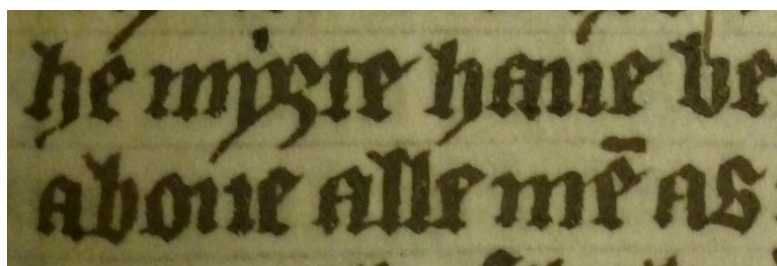 he myȝte haue be
aboue alle mē as